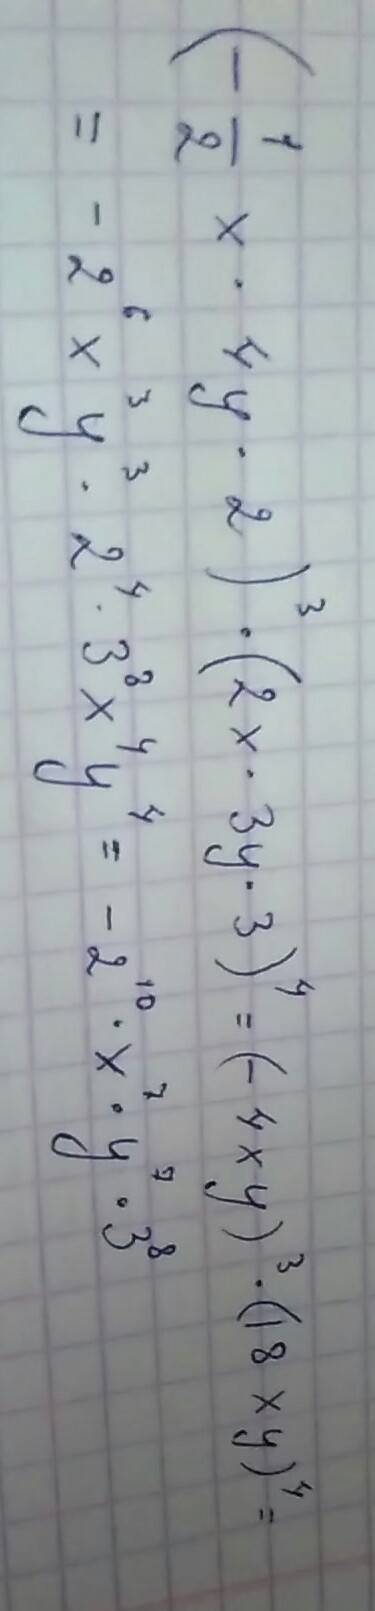 (-1/2 x · 4y · 2)³ · (2x · 3y · 3)⁴ = (-4xy)³ · (18xy)⁴ =
= -2⁶x³y³ · 2⁴ · 3⁸x⁴y⁴ = -2¹⁰ · x⁷ · y⁷ · 3⁸